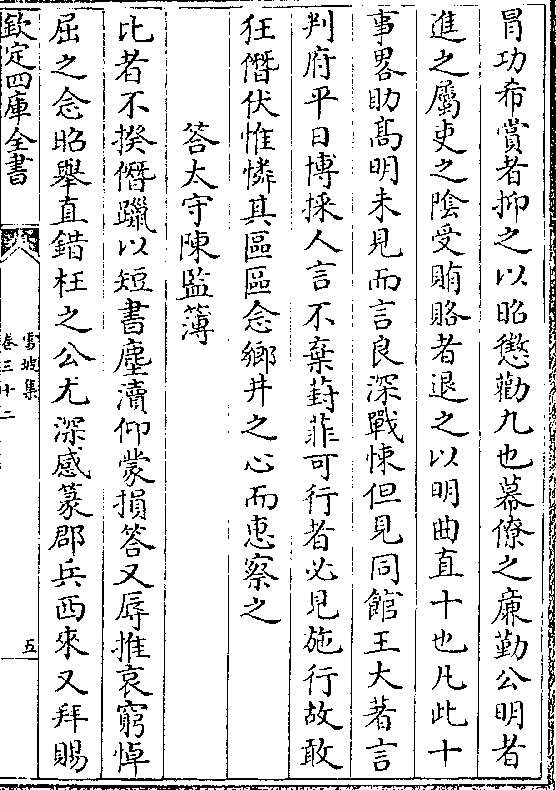 冒功希賞者抑之以昭懲勸九也幕僚之亷勤公明者
進之屬吏之陰受賄賂者退之以明曲直十也凡此十
事畧助髙明未見而言良深戰悚但見同館王大著言
判府平日博採人言不棄葑菲可行者必見施行故敢
狂僭伏惟憐其區區念鄉井之心而惠察之
答太守陳監簿
比者不揆僭躐以短書塵瀆仰蒙損答又辱推哀窮悼
屈之念昭舉直錯枉之公尤深感篆郡兵西來又拜賜
欽定四庫全書
雪坡集
卷三十二
五